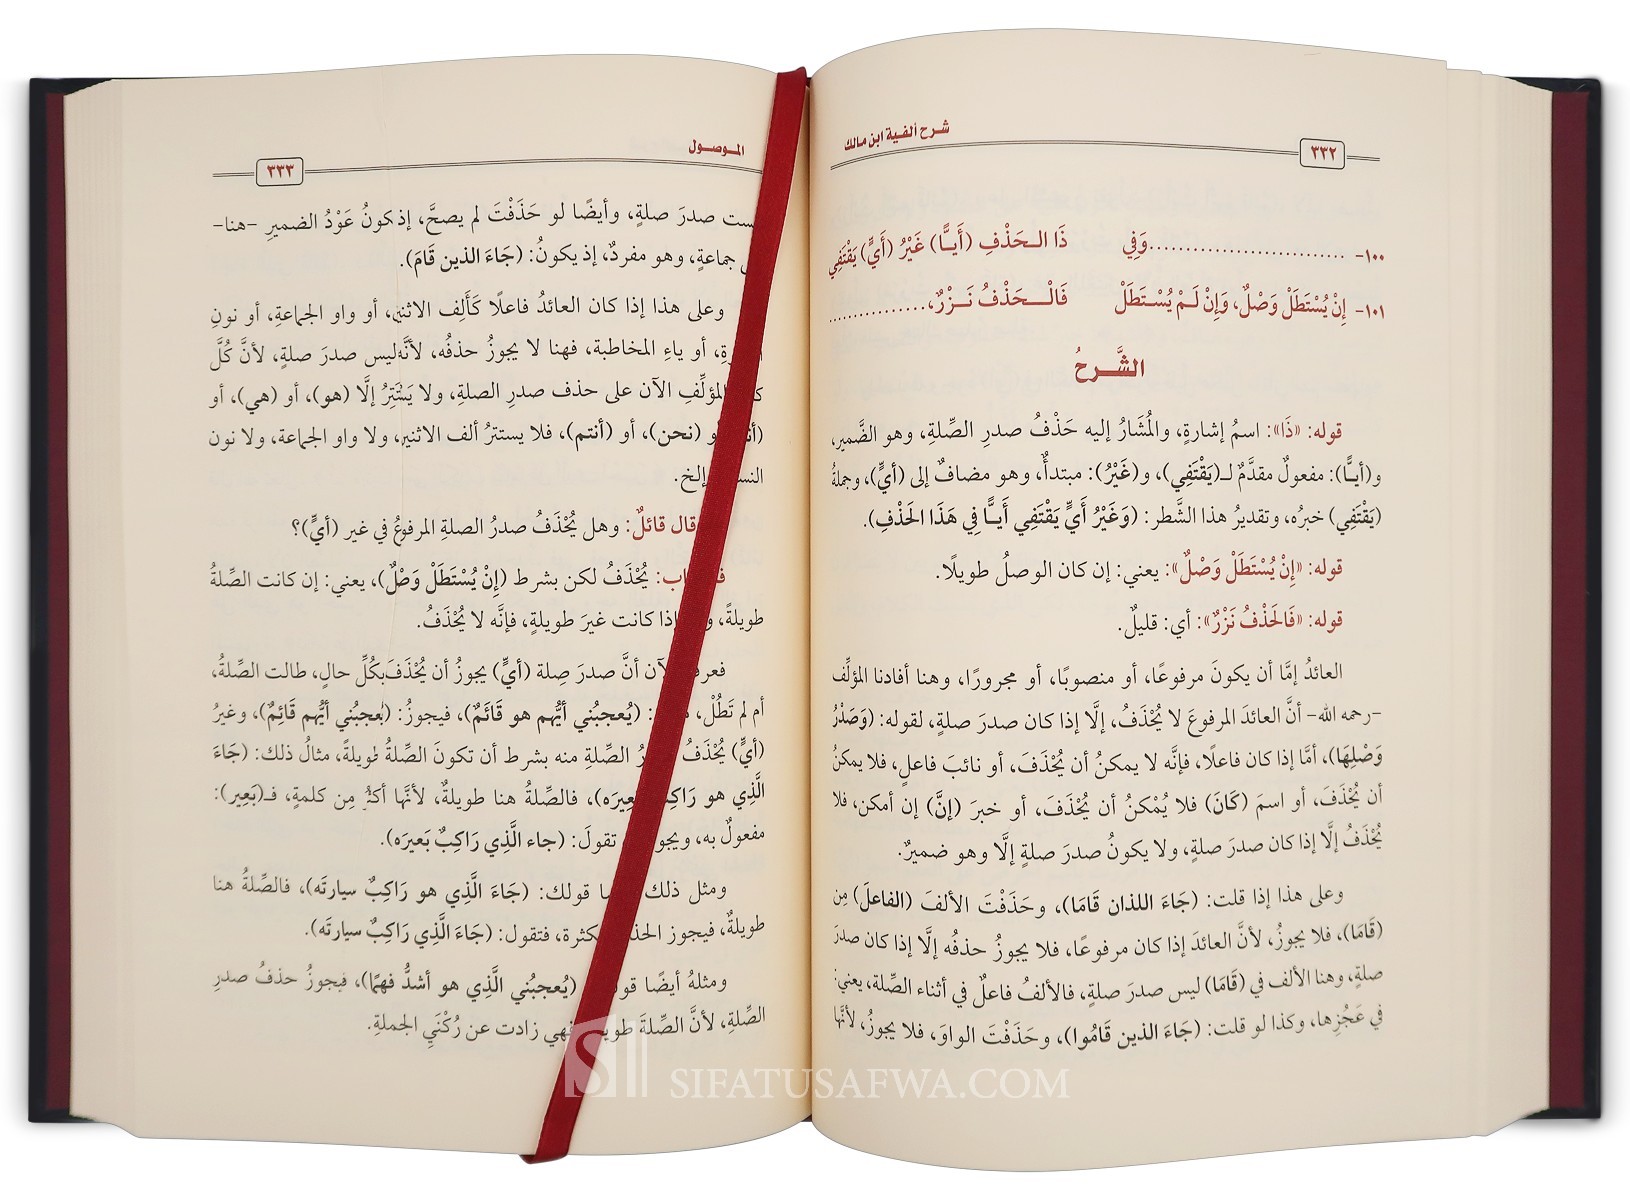 شرح ألفية ابن مالك
٣٣٢
١٠٠- ...........................وَفِي ذَا الـحَذْفِ (أَيًّا) غَيْرُ (أَيٍّ) يَقْتَفِي
١٠١- إِنْ يُسْتَطَلْ وَصْلٌ، وَإِنْ لَمْ يُسْتَطَلْ فَالْـحَذْفُ نَـزْرٌ،................
الشَّـرحُ
قوله: «ذَا»: اسمُ إشارةٍ، والمُشَارُ إليه حَذْفُ صدرِ الصِّلةِ، وهو الضَّمير،
و(أيـًّا): مفعولٌ مقدَّمٌ لـ(يَقْتَفِي)، و(غَيْرُ): مبتدأٌ، وهو مضافٌ إلى (أيٍّ)، وجملةُ
(يَقْتَفِي) خبرُه، وتقديرُ هذا الشَّطر: (وَغَيْرُ أَيٍّ يَقْتَفِي أَيـًّا فِي هَذَا الحَذْفِ).
قوله: «إِنْ يُسْتَطَلْ وَصْلٌ»: يعني: إن كان الوصلُ طويلًا.
قوله: «فَالحَذْفُ نَزْرٌ»: أي: قليلٌ.
العائدُ إمَّا أن يكونَ مرفوعًا، أو منصوبًا، أو مجرورًا، وهنا أفادنا المؤلِّف
-رحمه الله- أنَّ العائدَ المرفوعَ لا يُحْذَفُ، إلَّا إذا كان صدرَ صلةٍ، لقوله: (وَصَدْرُ
وَصْلِهَا)، أمَّا إذا كان فاعلًا، فإنَّه لا يمكنُ أن يُحْذَفَ، أو نائبَ فاعلٍ، فلا يمكنُ
أن يُحْذَفَ، أو اسمَ (كَانَ) فلا يُمْكنُ أن يُحْذَفَ، أو خبرَ (إنَّ) إن أمكن، فلا
يُحْذَفُ إلَّا إذا كان صدرَ صلةٍ، ولا يكونُ صدرَ صلةٍ إلَّا وهو ضميرٌ.
وعلى هذا إذا قلت: (جَاءَ اللذان قَامَا)، وحَذَفْتَ الألفَ (الفاعلَ) مِن
(قَامَا)، فلا يجوزُ، لأنَّ العائدَ إذا كان مرفوعًا، فلا يجوزُ حذفُه إلَّا إذا كان صدرَ
صلةٍ، وهنا الألف في (قَامَا) ليس صدرَ صلةٍ، فالألفُ فاعلٌ في أثناء الصِّلة، يعني:
في عَجُزِها، وكذا لو قلت: (جَاءَ الذين قَامُوا)، وحَذَفْتَ الواوَ، فلا يجوزُ، لأنَّها
الموصول
٣٣٣
ست صدرَ صلةٍ، وأيضًا لو حَذَفْتَ لم يصحَّ، إذ كونُ عَوْدُ الضميرِ -هنا-
جماعةٍ، وهو مفردٌ، إذ يكونُ: (جَاءَ الذين قَامَ).
وعلى هذا إذا كان العائدُ فاعلًا كَأَلِف الاثنين، أو واو الجماعةِ، أو نونِ
أو ياءِ المخاطبة، فهنا لا يجوزُ حذفُه، لأنَّه ليس صدرَ صلةٍ، لأنَّ كُلَّ
المؤلِّفِ الآن على حذف صدرِ الصلةِ، ولا يَسْتَتِرُ إلَّا (هو)، أو (هي)، أو
و (نحن)، أو (أنتم)، فلا يستترُ ألف الاثنين، ولا واو الجماعة، ولا نون
إلخ.
قال قائلٌ: وهل يُحْذَفُ صدرُ الصلةِ المرفوعُ في غير (أيٍّ)؟
يُحْذَفُ لكن بشرط (إِنْ يُسْتَطَلْ وَصْلٌ)، يعني: إن كانت الصِّلةُ
طويلةً، إذا كانت غيرَ طويلةٍ، فإنَّه لا يُحْذَفُ.
أنَّ صدرَ صِلة (أيٍّ) يجوزُ أن يُحْذَفَ بكُلِّ حالٍ، طالت الصِّلةُ،
أم لم تَطُلْ، (يُعجبُني أيُّهم هو قَائمٌ)، فيجوزُ: (يُعجبُني أيُّهم قَائِمٌ)، وغيرُ
(أيٍّ) يُحْذَفُ الصِّلةِ منه بشرط أن تكونَ الصِّلةُ طويلةً، مثالُ ذلك: (جَاءَ
الَّذِي هو رَاكِبٌ بَعِيرَه)، فالصِّلةُ هنا طويلةٌ، لأنَّها أكثرُ مِن كلمةٍ، فـ(بَعِير):
مفعولٌ به، ويجوز تقولَ: (جاء الَّذِي رَاكِبٌ بَعيرَه).
ومثل ذلك قولك: (جَاءَ الَّذِي هو رَاكِبٌ سيارتَه)، فالصِّلةُ هنا
طويلةٌ، فيجوز الحذ كثرة، فتقول: (جَاءَ الَّذِي رَاكِبٌ سيارتَه).
ومثلهُ أيضًا (يُعجبُني الَّذِي هو أشدُّ فهمًا)، فيجوزُ حذفُ صدرِ
الصِّلةِ، لأنَّ الصِّلةَ طويلة فهي زادت عن رُكْنَيِ الجملةِ.
SIFATUSAFWA.COM